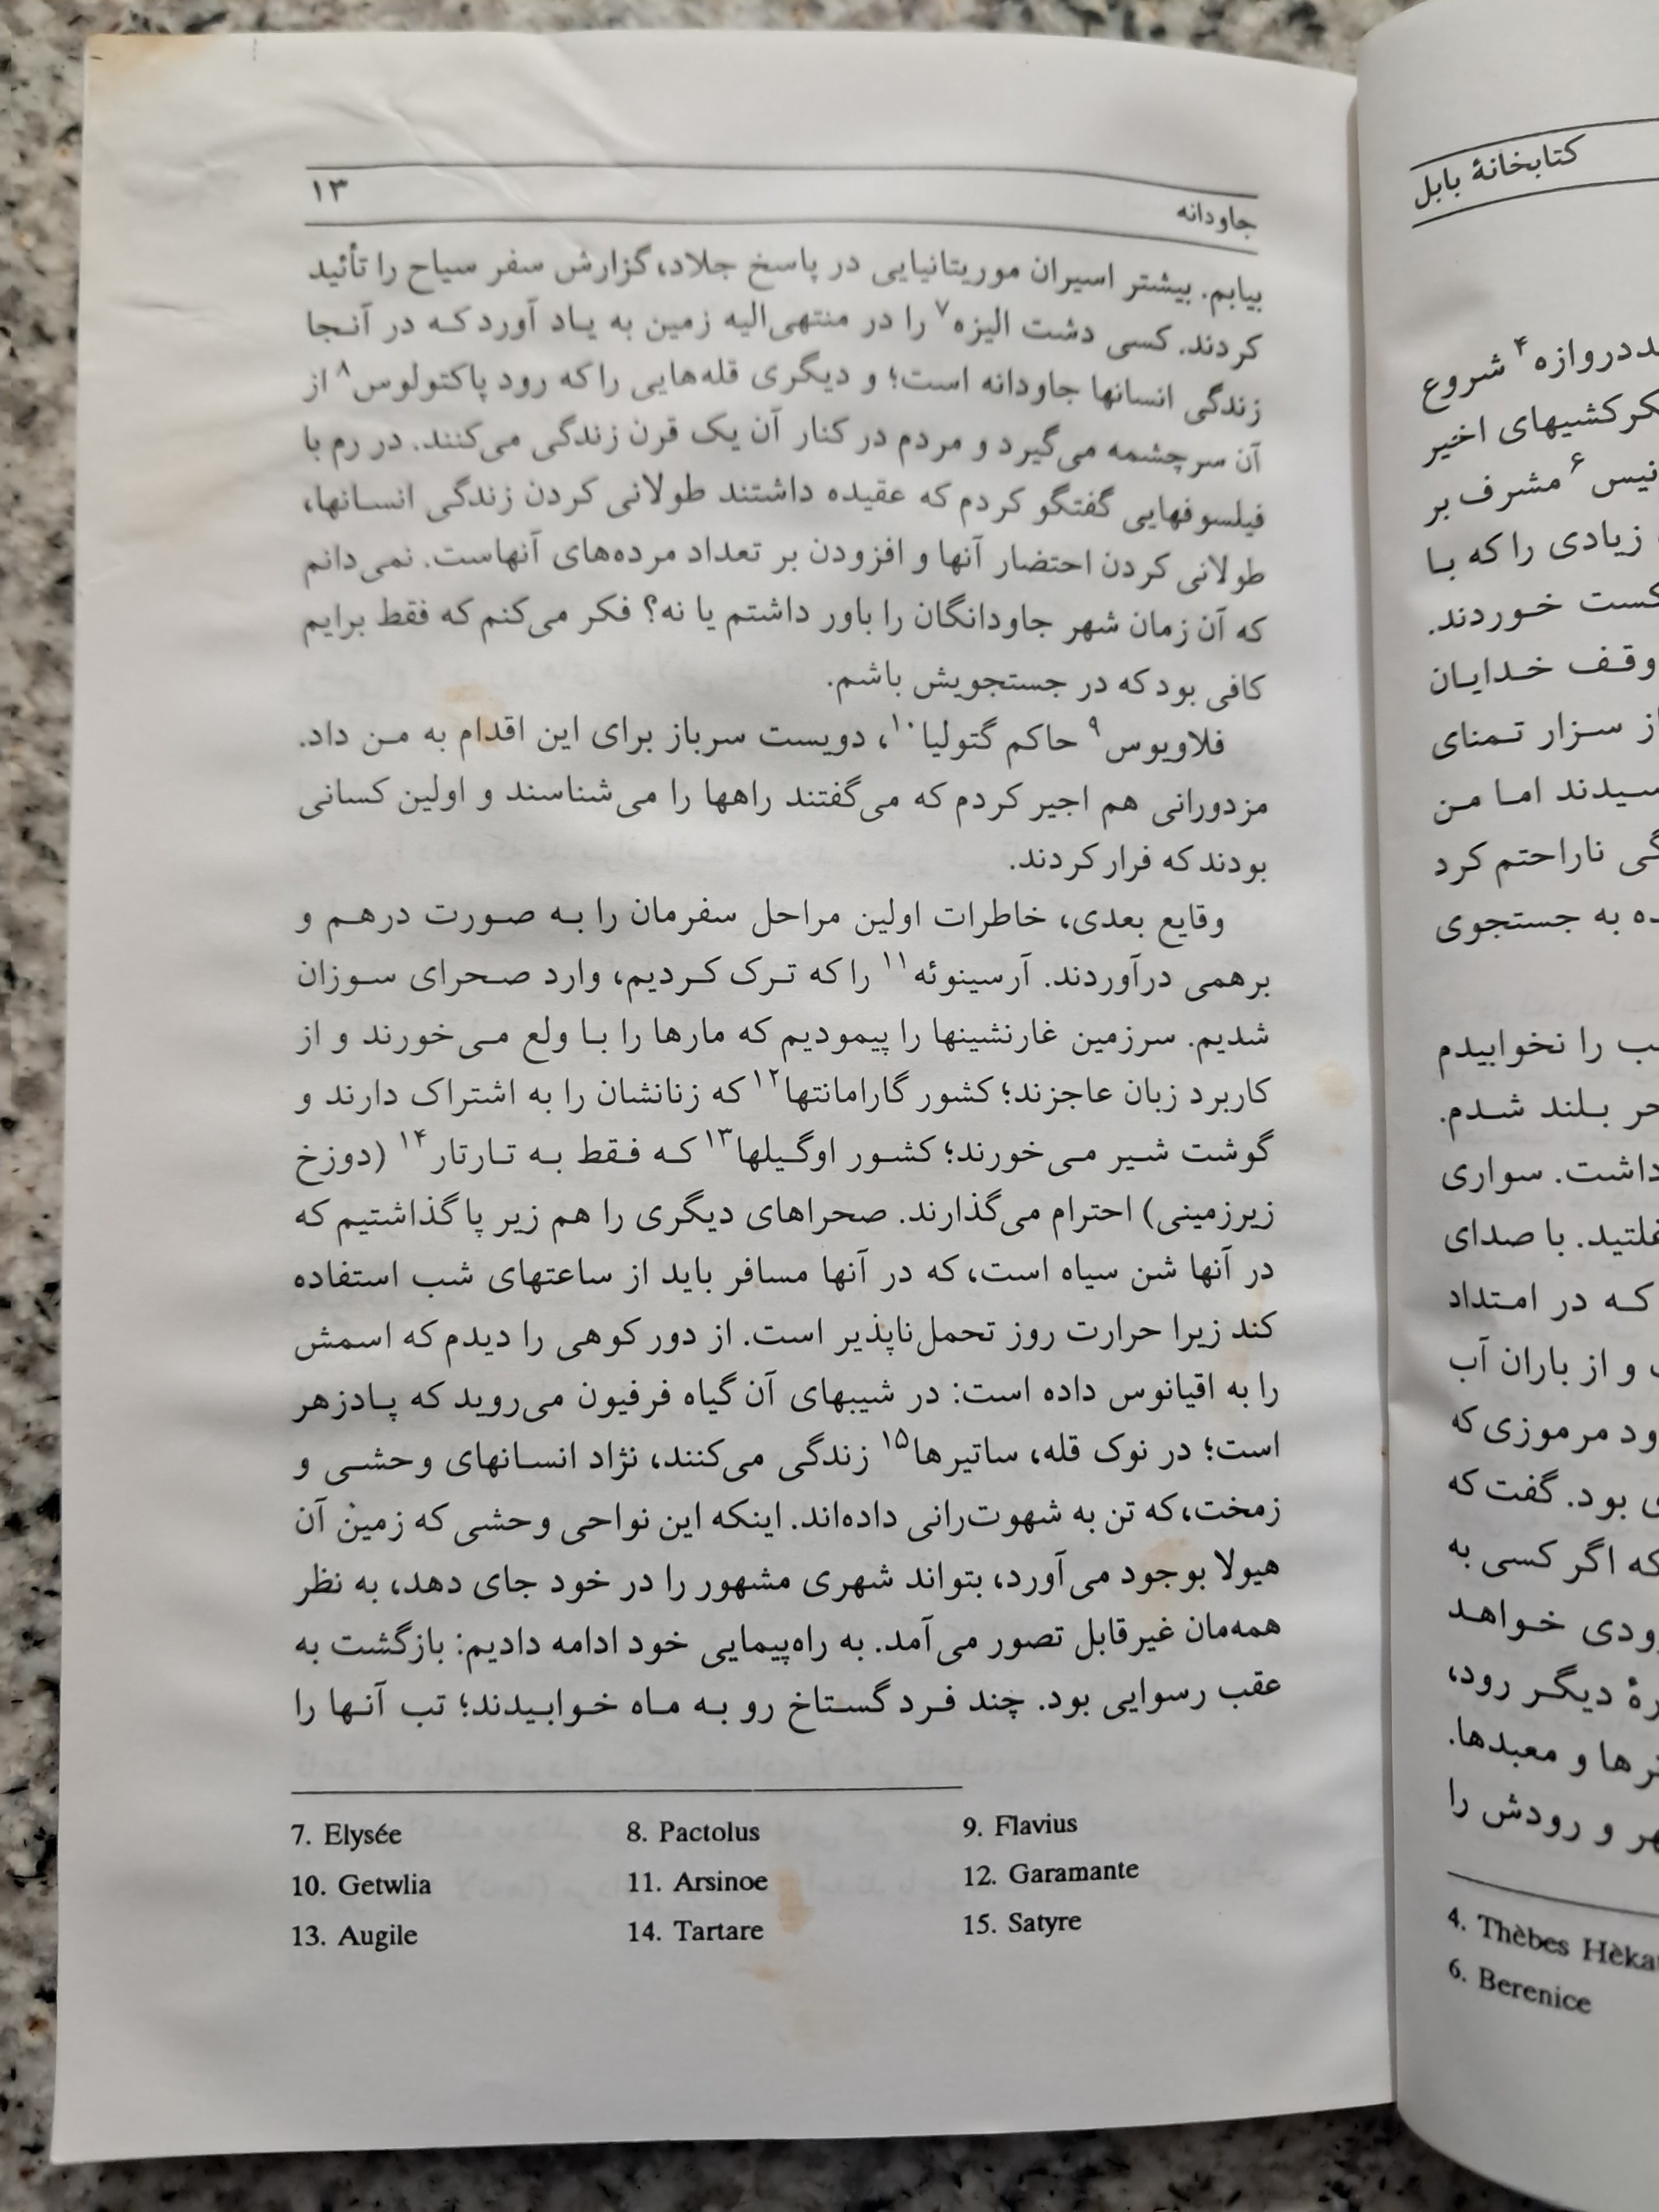 جاودانه ۱۳
بیابم. بیشتر اسیران موریتانیایی در پاسخ جلاد، گزارش سفر سیاح را تأئید
کردند. کسی دشت الیزه۷ را در منتهی‌الیه زمین به یاد آورد که در آنجا
زندگی انسانها جاودانه است؛ و دیگری قله‌هایی را که رود پاکتولوس۸ از
آن سرچشمه می‌گیرد و مردم در کنار آن یک قرن زندگی می‌کنند. در رم با
فیلسوفهایی گفتگو کردم که عقیده داشتند طولانی کردن زندگی انسانها،
طولانی کردن احتضار آنها و افزودن بر تعداد مرده‌های آنهاست. نمی‌دانم
که آن زمان شهر جاودانگان را باور داشتم یا نه؟ فکر می‌کنم که فقط برایم
کافی بود که در جستجویش باشم.
فلاویوس۹ حاکم گتولیا۱۰، دویست سرباز برای این اقدام به من داد.
مزدورانی هم اجیر کردم که می‌گفتند راهها را می‌شناسند و اولین کسانی
بودند که فرار کردند.
وقایع بعدی، خاطرات اولین مراحل سفرمان را به صورت درهم و
برهمی درآوردند. آرسینوئه۱۱ را که ترک کردیم، وارد صحرای سوزان
شدیم. سرزمین غارنشینها را پیمودیم که مارها را با ولع می‌خورند و از
کاربرد زبان عاجزند؛ کشور گارامانتها۱۲ که زنانشان را به اشتراک دارند و
گوشت شیر می‌خورند؛ کشور اوگیلها۱۳ که فقط به تارتار۱۴ (دوزخ
زیرزمینی) احترام می‌گذارند. صحراهای دیگری را هم زیر پا گذاشتیم که
در آنها شن سیاه است، که در آنها مسافر باید از ساعتهای شب استفاده
کند زیرا حرارت روز تحمل‌ناپذیر است. از دور کوهی را دیدم که اسمش
را به اقیانوس داده است: در شیبهای آن گیاه فرفیون می‌روید که پادزهر
است؛ در نوک قله، ساتیرها۱۵ زندگی می‌کنند، نژاد انسانهای وحشی و
زمخت، که تن به شهوت‌رانی داده‌اند. اینکه این نواحی وحشی که زمینْ آن
هیولا بوجود می‌آورد، بتواند شهری مشهور را در خود جای دهد، به نظر
همه‌مان غیرقابل تصور می‌آمد. به راه‌پیمایی خود ادامه دادیم: بازگشت به
عقب رسوایی بود. چند فرد گستاخ رو به ماه خوابیدند؛ تب آنها را
7. Elysée 8. Pactolus 9. Flavius
10. Getwlia 11. Arsinoe 12. Garamante
13. Augile 14. Tartare 15. Satyre
کتابخانهٔ بابل
شروع
اخیر
مشرف بر
زیادی را که با
خوردند.
وقف خدایان
سزار تمنای
اما من
ناراحتم کرد
به جستجوی
را نخوابیدم
بلند شدم.
داشت. سواری
با صدای
که در امتداد
و از باران آب
مرموزی که
بود. گفت که
که اگر کسی به
خواهد
دیگر رود،
و معبدها.
و رودش را
4. Thèbes
6. Berenice